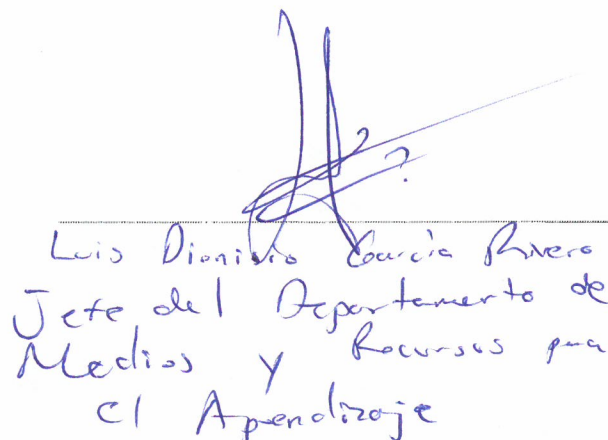 Luis Dionisio García Rivero
Jefe del Departamento de
Medios y Recursos para
el Aprendizaje